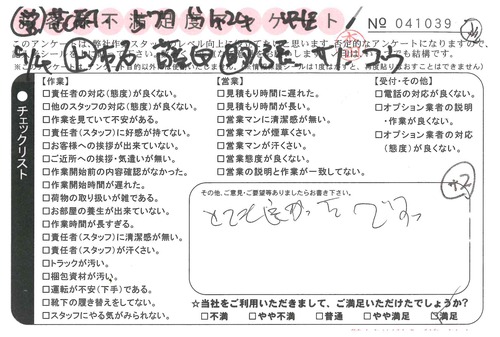 No 041039
このアンケートは、弊社作
否定的なアンケートになりますので、
でも結構です。
チェックリスト
【作業】
□責任者の対応(態度)が良くない。
□他のスタッフの対応(態度)が良くない。
□作業を見ていて不安がある。
□責任者(スタッフ)に好感が持てない。
□お客様への挨拶が出来ていない。
□ご近所への挨拶・気遣いが無い。
□作業開始前の内容確認がなかった。
□作業開始時間が遅れた。
□荷物の取り扱いが雑である。
□お部屋の養生が出来ていない。
□作業時間が長すぎる。
□責任者(スタッフ)に清潔感が無い。
□責任者(スタッフ)が汗くさい。
□トラックが汚い。
□梱包資材が汚い。
□運転が不安(下手)である。
□靴下の履き替えをしてない。
□スタッフにやる気がみられない。
【営業】
□見積もり時間に遅れた。
□見積もり時間が長い。
□営業マンに清潔感が無い。
□営業マンが煙草くさい。
□営業マンが汗くさい。
□営業態度が良くない。
□営業の説明と作業が一致してない。
【受付・その他】
□電話の対応が良くない。
□オプション業者の説明
・作業が良くない。
□オプション業者の対応
(態度)が良くない。
その他、ご意見・ご要望等ありましたらお書き下さい。
とても良かったです。
☆当社をご利用いただきまして、ご満足いただけたでしょうか?
□不満 □やや不満 □普通 □やや満足 □満足